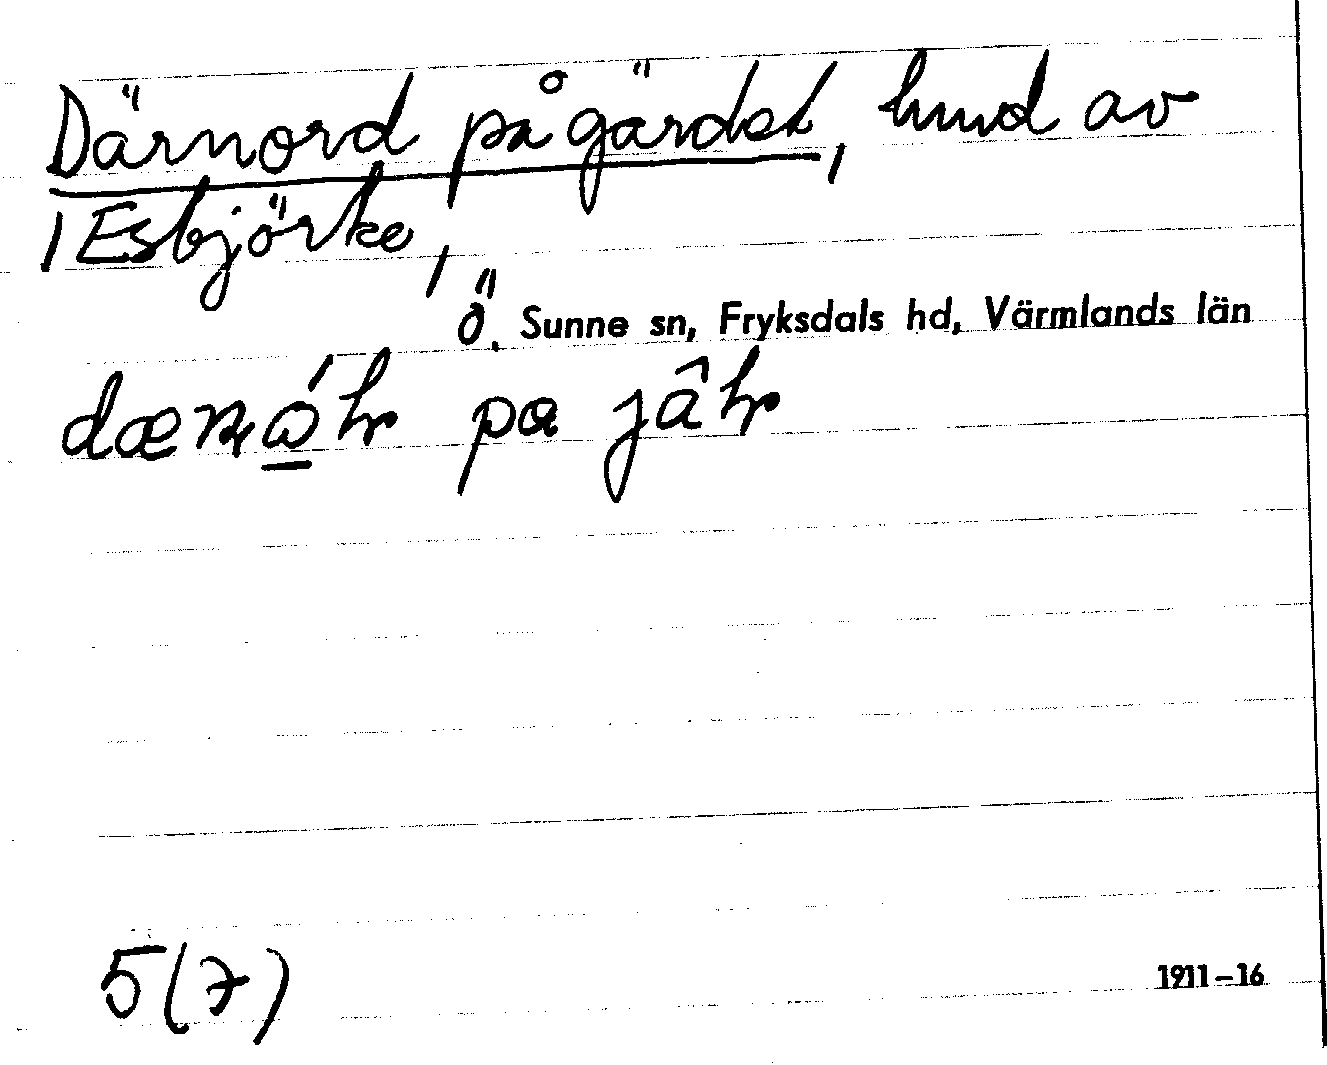 Därnord på gärdet, hmd av
Esbjörke,
Ö. Sunne sn, Fryksdals hd, Värmlands län
pa
5(7)
1911-16